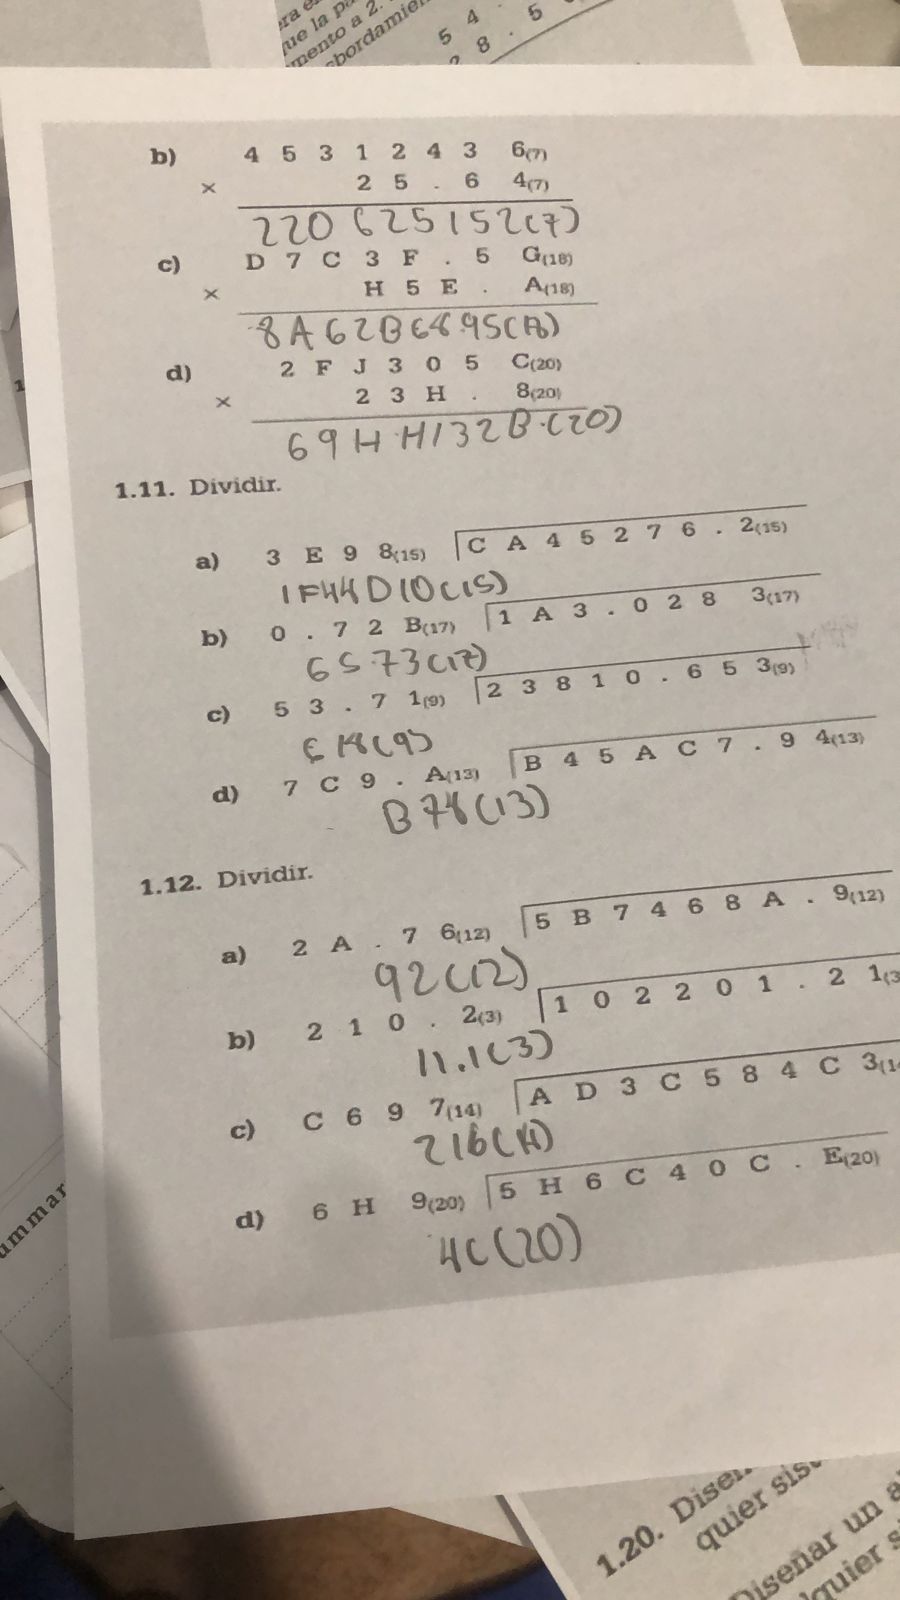 que la
mento a 2.
5 4
8 . 5
b) 4 5 3 1 2 4 3 6(7)
× 2 5 . 6 4(7)
220625152(7)
c) D 7 C 3 F . 5 G(18)
× H 5 E . A(18)
d) 2 F J 3 0 5 C(20)
× 2 3 H . 8(20)
69HH132B.(20)
1.11. Dividir.
a) 3 E 9 8(15) C A 4 5 2 7 6 . 2(15)
1F44D10(15)
b) 0 . 7 2 B(17) 1 A 3 . 0 2 8 3(17)
6573(17)
c) 5 3 . 7 1(9) 2 3 8 1 0 . 6 5 3(9)
d) 7 C 9 . A(13) B 4 5 A C 7 . 9 4(13)
B78(13)
1.12. Dividir.
a) 2 A . 7 6(12) 5 B 7 4 6 8 A . 9(12)
92(12)
b) 2 1 0 . 2(3) 1 0 2 2 0 1 . 2 1(3
11.1(3)
c) C 6 9 7(14) A D 3 C 5 8 4 C 3(14
216(14)
d) 6 H 9(20) 5 H 6 C 4 0 C . E(20)
4C(20)
1.20. Diseñ
quier sis
Diseñar un a